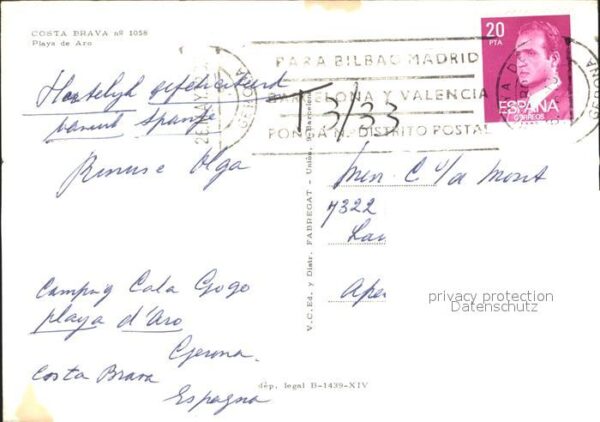 COSTA BRAVA nº 1058
Playa de Aro
GERONA
PARA BILBAO MADRID
BARCELONA Y VALENCIA
PONGA N.º DISTRITO POSTAL
20
PTA
ESPAÑA
CORREOS
GERONA
T 3/33
Hartelijk gefeliciteerd
vanuit Spanje
Olga
Camping Cala Gogo
playa d'Aro
Gerona.
Costa Brava
Espagna
V.C. Ed. y Distr. FABREGAT - Unión, 9-Barcelona
Mevr. C v/d Mont
7322
Laa
Ape
privacy protection
Datenschutz
dép. legal B-1439-XIV